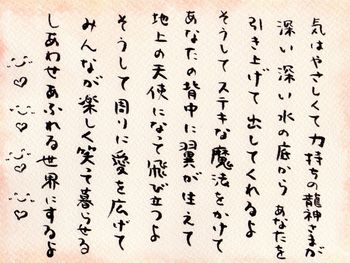 気はやさしくて 力持ちの龍神さまが
深い 深い 水の底から あなたを
引き上げて 出してくれるよ
そうして ステキな魔法をかけて
あなたの背中に 翼が生えて
地上の天使になって 飛び立つよ
そうして 周りに愛を広げて
みんなが楽しく笑って暮らせる
しあわせあふれる世界にするよ